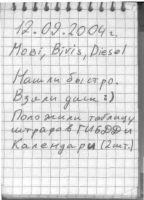 12.09.2004г.
Mobi, Bivis, Diesel
Нашли быстро.
Взяли диск :)
Положили таблицу
штрафов ГИБДД и
Календари (2шт.)